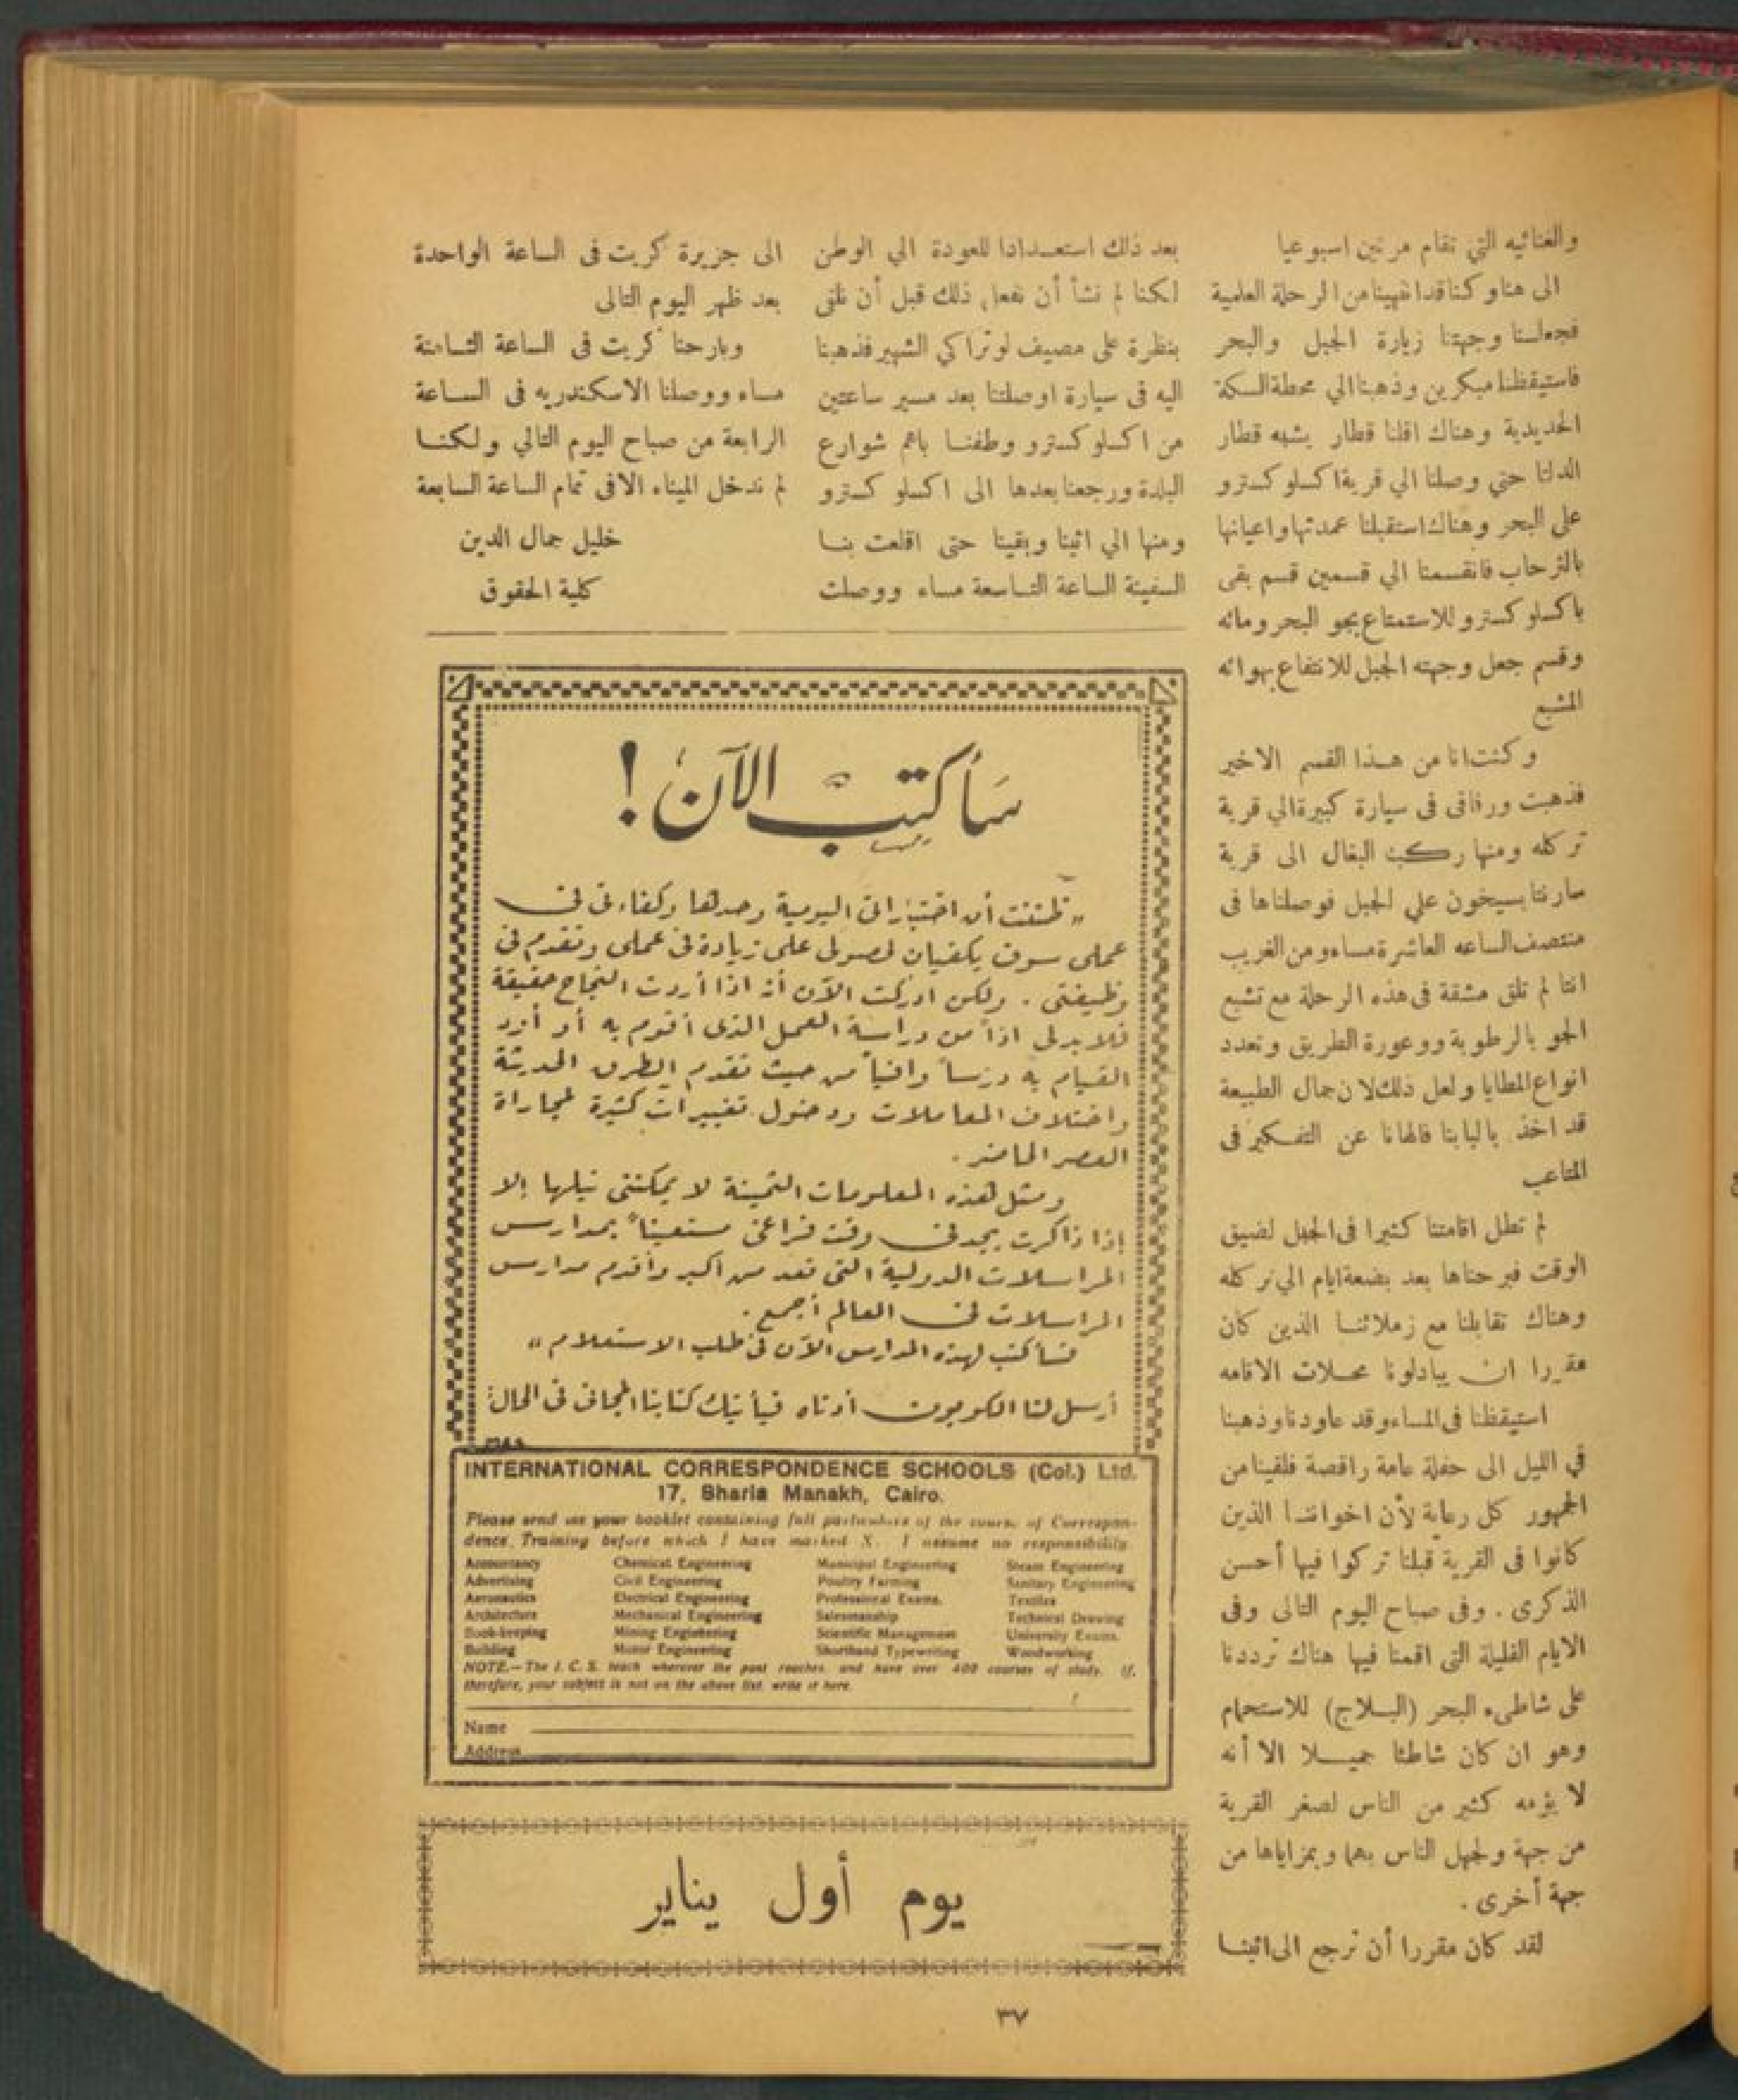 والغنائيه التي تقام مرتين اسبوعيا
الى هنا وكنا قد انتهينا من الرحلة العلمية
فجعلنا وجهتنا زيارة الجبل والبحر
فاستيقظنا مبكرين وذهبنا الي محطة السكة
الحديدية وهناك اقلنا قطار يشبه قطار
الدلتا حتي وصلنا الي قرية اكسلو كسترو
على البحر وهناك استقبلنا عمدتها واعيانها
بالترحاب فانقسمنا الي قسمين قسم بقى
باكسلو كسترو للاستمتاع بجو البحر ومائه
وقسم جعل وجهته الجبل للانتفاع بهوائه
المشبع
وكنت انا من هذا القسم الاخير
فذهبت ورفاقى فى سيارة كبيرة الي قرية
تركله ومنها ركبت البغال الى قرية
سارنتا بسيخون علي الجبل فوصلناها فى
منتصف الساعه العاشرة مساء ومن الغريب
اننا لم نلق مشقة فى هذه الرحلة مع تشبع
الجو بالرطوبة ووعورة الطريق وتعدد
انواع المطايا ولعل ذلك لان جمال الطبيعة
قد اخذ بالبابنا فالهانا عن التفكير فى
المتاعب
لم تطل اقامتنا كثيرا فى الجبل لضيق
الوقت فبرحناها بعد بضعة ايام الي تركله
وهناك تقابلنا مع زملائنا الذين كان
مقررا ان يبادلونا محلات الاقامه
استيقظنا فى المساء وقد عاودنا وذهبنا
في الليل الى حفلة عامة راقصة فلقينا من
الجمهور كل رعاية لأن اخواننا الذين
كانوا فى القرية قبلنا تركوا فيها أحسن
الذكرى . وفى صباح اليوم التالى وفى
الايام القليلة التى اقمنا فيها هناك ترددنا
على شاطىء البحر (البلاج) للاستحمام
وهو ان كان شاطئا جميلا الا أنه
لا يؤمه كثير من الناس لصغر القرية
من جهة ولجهل الناس بها وبمزاياها من
جهة أخرى .
لقد كان مقررا أن نرجع الى اثينا
بعد ذلك استعدادا للعودة الي الوطن
لكننا لم نشأ أن نفعل ذلك قبل أن نلقى
بنظرة على مصيف لوتراكي الشهير فذهبنا
اليه فى سيارة اوصلتنا بعد مسير ساعتين
من اكسلو كسترو وطفنا باهم شوارع
البلدة ورجعنا بعدها الى اكسلو كسترو
ومنها الي اثينا وبقينا حتى اقلعت بنا
السفينة الساعة التاسعة مساء ووصلت
الى جزيرة كريت فى الساعة الواحدة
بعد ظهر اليوم التالى
وبارحنا كريت فى الساعة الثامنة
مساء ووصلنا الاسكندريه فى الساعة
الرابعة من صباح اليوم التالي ولكننا
لم ندخل الميناء الا فى تمام الساعة السابعة
خليل جمال الدين
كلية الحقوق
سأكتب الآن !
„ ظننت أن اختباراتى اليومية وحدها وكفاءتى فى
عملى سوف يكفيان لحصولى على زيادة فى عملى وتقدم فى
وظيفتى . ولكن ادركت الآن أنه اذا أردت النجاح حقيقة
فلابد لى اذاً من دراسة العمل الذى أقوم به أو أود
القيام به درساً وافياً من حيث تقدم الطرق الحديثة
واختلاف المعاملات ودخول تغييرات كثيرة لمجاراة
العصر الحاضر .
ومثل هذه المعلومات الثمينة لا يمكننى نيلها إلا
إذا ذاكرت بجد فى وقت فراغى مستعيناً بمدارس
المراسلات الدولية التى تعد من أكبر وأقدم مدارس
المراسلات فى العالم أجمع .
فسأكتب لهذه المدارس الآن فى طلب الاستعلام „
أرسل لنا الكوبون أدناه فيأتيك كتابنا المجانى فى الحال
INTERNATIONAL CORRESPONDENCE SCHOOLS (Col.) Ltd.
17, Sharia Manakh, Cairo.
Please send me your booklet containing full particulars of the course of Correspon-
dence Training before which I have marked X. I assume no responsibility.
Accountancy Chemical Engineering Municipal Engineering Steam Engineering
Advertising Civil Engineering Poultry Farming Sanitary Engineering
Aeronautics Electrical Engineering Professional Exams. Textiles
Architecture Mechanical Engineering Salesmanship Technical Drawing
Book-keeping Mining Engineering Scientific Management University Exams.
Building Motor Engineering Shorthand Typewriting Woodworking
NOTE.—The I. C. S. teach wherever the post reaches, and have over 400 courses of study. If,
therefore, your subject is not on the above list, write it here.
Name
Address
يوم أول يناير
٣٧